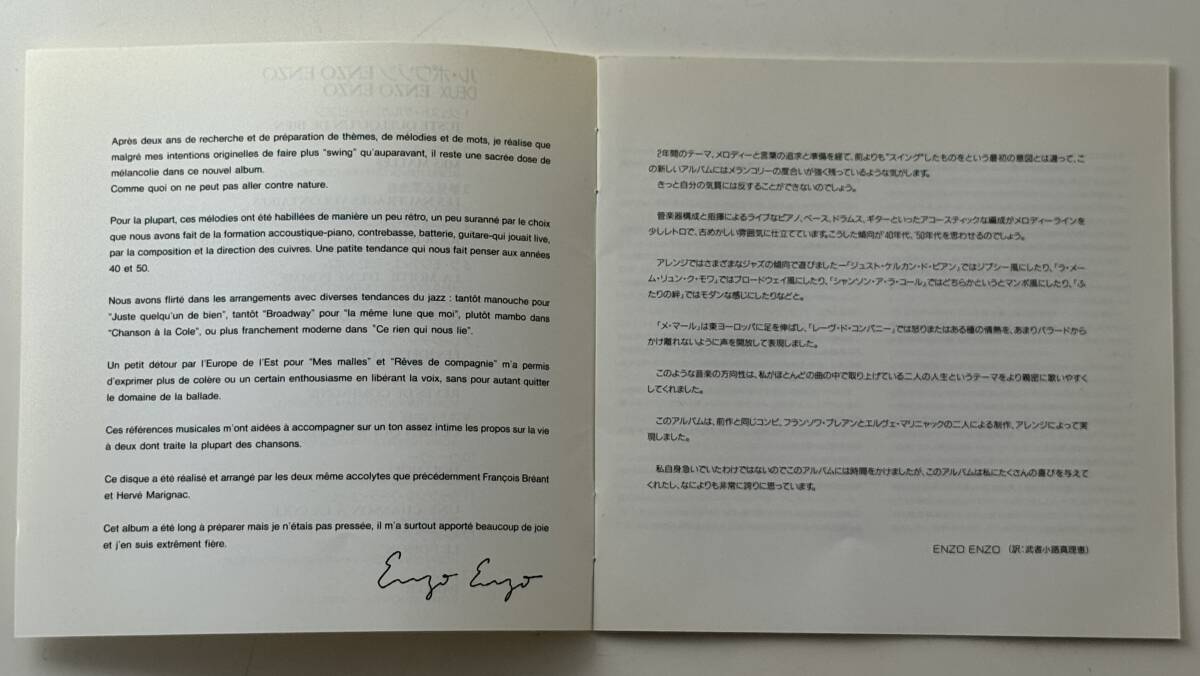 Après deux ans de recherche et de préparation de thèmes, de mélodies et de mots, je réalise que
malgré mes intentions originelles de faire plus "swing" qu'auparavant, il reste une sacrée dose de
mélancolie dans ce nouvel album.
Comme quoi on ne peut pas aller contre nature.
Pour la plupart, ces mélodies ont été habillées de manière un peu rétro, un peu suranné par le choix
que nous avons fait de la formation accoustique-piano, contrebasse, batterie, guitare-qui jouait live,
par la composition et la direction des cuivres. Une patite tendance qui nous fait penser aux années
40 et 50.
Nous avons flirté dans les arrangements avec diverses tendances du jazz : tantôt manouche pour
"Juste quelqu'un de bien", tantôt "Broadway" pour "la même lune que moi", plutôt mambo dans
"Chanson à la Cole", ou plus franchement moderne dans "Ce rien qui nous lie".
Un petit détour par l'Europe de l'Est pour "Mes malles" et "Rêves de compagnie" m'a permis
d'exprimer plus de colère ou un certain enthousiasme en libérant la voix, sans pour autant quitter
le domaine de la ballade.
Ces références musicales m'ont aidées à accompagner sur un ton assez intime les propos sur la vie
à deux dont traite la plupart des chansons.
Ce disque a été réalisé et arrangé par les deux même accolytes que précédemment François Bréant
et Hervé Marignac.
Cet album a été long à préparer mais je n'étais pas pressée, il m'a surtout apporté beaucoup de joie
et j'en suis extrêment fière.
Enzo Enzo
2年間のテーマ、メロディーと言葉の追求と準備を経て、前よりも"スイング"したものをという最初の意図とは違って、こ
の新しいアルバムにはメランコリーの度合いが強く残っているような気がします。
きっと自分の気質には反することができないのでしょう。
管楽器構成と指揮によるライブなピアノ、ベース、ドラムス、ギターといったアコースティックな編成がメロディーラインを
少しレトロで、古めかしい雰囲気に仕立てています。こうした傾向が'40年代、'50年代を思わせるのでしょう。
アレンジではさまざまなジャズの傾向で遊びました―「ジュスト・ケルカン・ド・ビアン」ではジプシー風にしたり、「ラ・メー
ム・リュン・ク・モワ」ではブロードウェイ風にしたり、「シャンソン・ア・ラ・コール」ではどちらかというとマンボ風にしたり、「ふ
たりの絆」ではモダンな感じにしたりなどと。
「メ・マール」は東ヨーロッパに足を伸ばし、「レーヴ・ド・コンパニー」では怒りまたはある種の情熱を、あまりバラードから
かけ離れないように声を開放して表現しました。
このような音楽の方向性は、私がほとんどの曲の中で取り上げている二人の人生というテーマをより親密に歌いやすく
してくれました。
このアルバムは、前作と同じコンビ、フランソワ・ブレアンとエルヴェ・マリニャックの二人による制作、アレンジによって実
現しました。
私自身急いでいたわけではないのでこのアルバムには時間をかけましたが、このアルバムは私にたくさんの喜びを与えて
くれたし、なによりも非常に誇りに思っています。
ENZO ENZO （訳：武者小路真理恵）